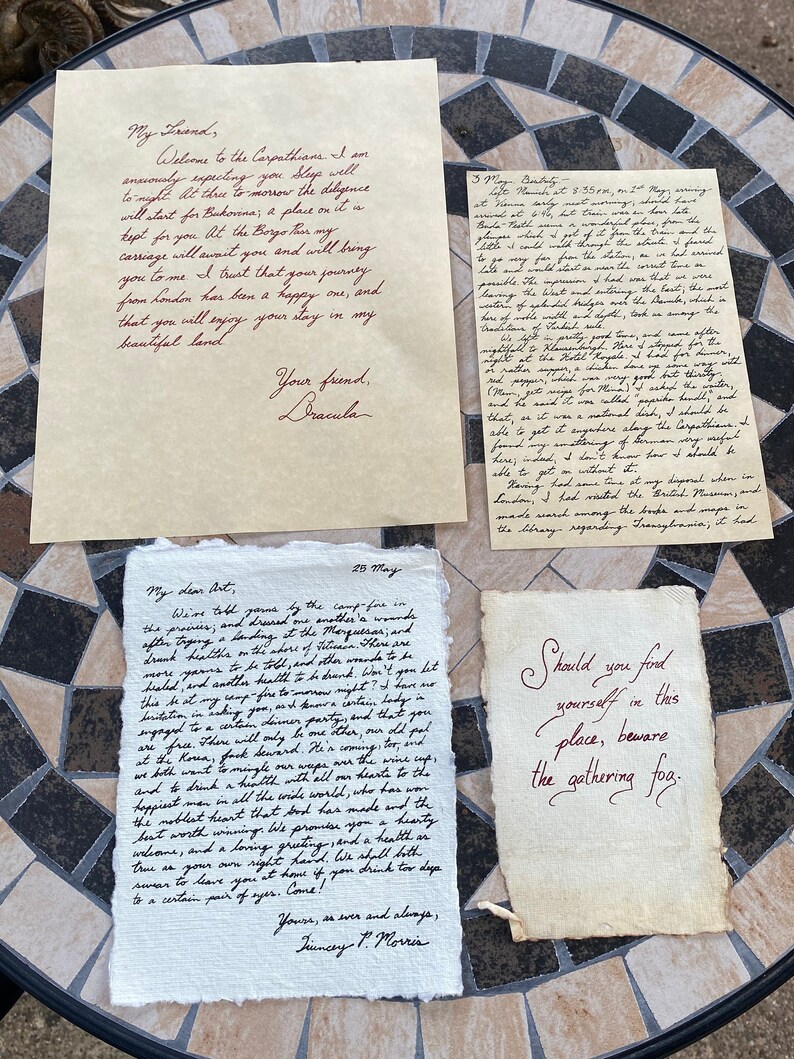 My Friend,
Welcome to the Carpathians. I am
anxiously expecting you. Sleep well
to night. At three to-morrow the diligence
will start for Bukovina; a place on it is
kept for you. At the Borgo Pass my
carriage will await you and will bring
you to me. I trust that your journey
from London has been a happy one, and
that you will enjoy your stay in my
beautiful land.
Your friend,
Dracula
3 May. Bistritz—
left Munich at 8:35 pm, on 1st May, arriving
at Vienna early next morning; should have
arrived at 6:46, but train was an hour late.
Buda-Pesth seems a wonderful place, from the
glimpse which I got of it from the train and the
little I could walk through the streets. I feared
to go very far from the station, as we had arrived
late and would start as near the correct time as
possible. The impression I had was that we were
leaving the West and entering the East; the most
western of splendid bridges over the Danube, which is
here of noble width and depth, took us among the
traditions of Turkish rule.
We left in pretty good time, and came after
nightfall to Klausenburgh. Here I stopped for the
night at the Hotel Royale. I had for dinner,
or rather supper, a chicken done up some way with
red pepper, which was very good but thirsty.
(Mem, get recipe for Mina) I asked the waiter,
and he said it was called "paprika hendl", and
that, as it was a national dish, I should be
able to get it anywhere along the Carpathians. I
found my smattering of German very useful
here; indeed, I don't know how I should be
able to get on without it.
Having had some time at my disposal when in
London, I had visited the British Museum, and
made search among the books and maps in
the library regarding Transylvania; it had
25 May
My dear Art,
We've told yarns by the camp-fire in
the prairies; and dressed one another's wounds
after trying a landing at the Marquesas; and
drunk healths on the shore of Titicaca. There are
more yarns to be told, and other wounds to be
healed, and another health to be drunk. Won't you let
this be at my camp-fire to-morrow night? I have no
hesitation in asking you, as I know a certain lady is
engaged to a certain dinner party, and that you
are free. There will only be one other, our old pal
at the Korea, Jack Seward. He's coming, too, and
we both want to mingle our weeps over the wine cup,
and to drink a health with all our hearts to the
happiest man in all the wide world, who has won
the noblest heart that God has made and the
best worth winning. We promise you a hearty
welcome, and a loving greeting, and a health as
true as your own right hand. We shall both
swear to leave you at home if you drink too deep
to a certain pair of eyes. Come!
Yours, as ever and always,
Quincey P. Morris
Should you find
yourself in this
place, beware
the gathering fog.